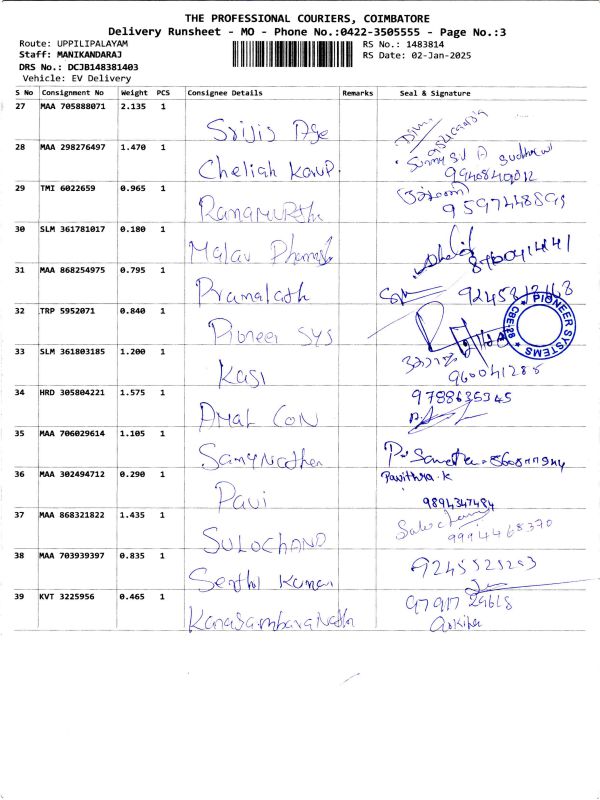 THE PROFESSIONAL COURIERS, COIMBATORE
Delivery Runsheet - MO - Phone No.:0422-3505555 - Page No.:3
Route: UPPILIPALAYAM
RS No.: 1483814
Staff: MANIKANDARAJ
RS Date: 02-Jan-2025
DRS No.: DCJB148381403
Vehicle: EV Delivery
S No Consignment No Weight PCS Consignee Details Remarks Seal & Signature
27 MAA 705888071 2.135 1
Srijis Age
28 MAA 298276497 1.470 1
Cheliah Karup
9940849012
29 TMI 6022659 0.965 1
Ranamurthi
9597448899
30 SLM 361781017 0.180 1
Malar Pharmacy
31 MAA 868254975 0.795 1
Pramalath
32 TRP 5952071 0.840 1
Pioneer SYS
PIONEER SYSTEMS CBE-28
33 SLM 361803185 1.200 1
Kasi
960041288
34 HRD 305804221 1.575 1
9788635345
Amal CON
35 MAA 706029614 1.105 1
Samynathen
36 MAA 302494712 0.290 1
Pavithra.K
Pavi
9894347484
37 MAA 868321822 1.435 1
SULOCHANO
9994468370
38 MAA 703939397 0.835 1
9245525253
Senthil Kumar
39 KVT 3225956 0.465 1
9791729618
Kanagasambara Nathn
Askiha